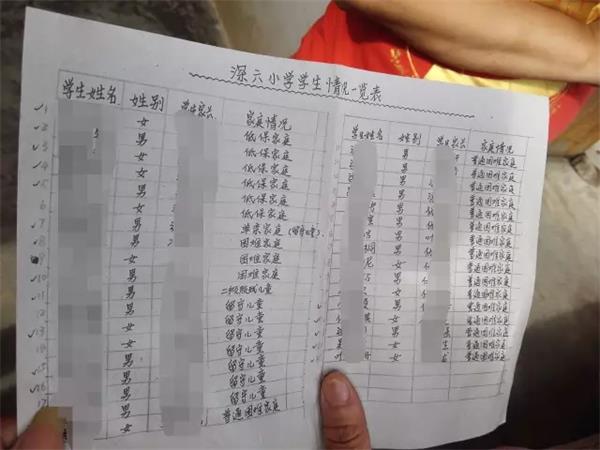 深六小学学生情况一览表
学生姓名 姓别 学生家长 家庭情况
1 女 低保家庭
2 男 低保家庭
3 女 低保家庭
4 女 低保家庭
5 男 低保家庭
6 女 低保家庭
7 男 单亲家庭(留守儿童)
8 男 困难家庭
9 女 困难家庭
10 男 困难家庭
11 男 二级残疾儿童
男 留守儿童
13 女 留守儿童
14 女 留守儿童
15 男 留守儿童
16 男 留守儿童
17 男 留守儿童
女 普通困难家庭
学生姓名 姓别 学生家长 家庭情况
男 普通困难家庭
女 普通困难家庭
男 普通困难家庭
男 普通困难家庭
男 普通困难家庭
男 普通困难家庭
男 普通困难家庭
女 普通困难家庭
男 普通困难家庭
女 普通困难家庭
女 普通困难家庭
男 普通困难家庭
女 普通困难家庭
叶 女 普通困难家庭